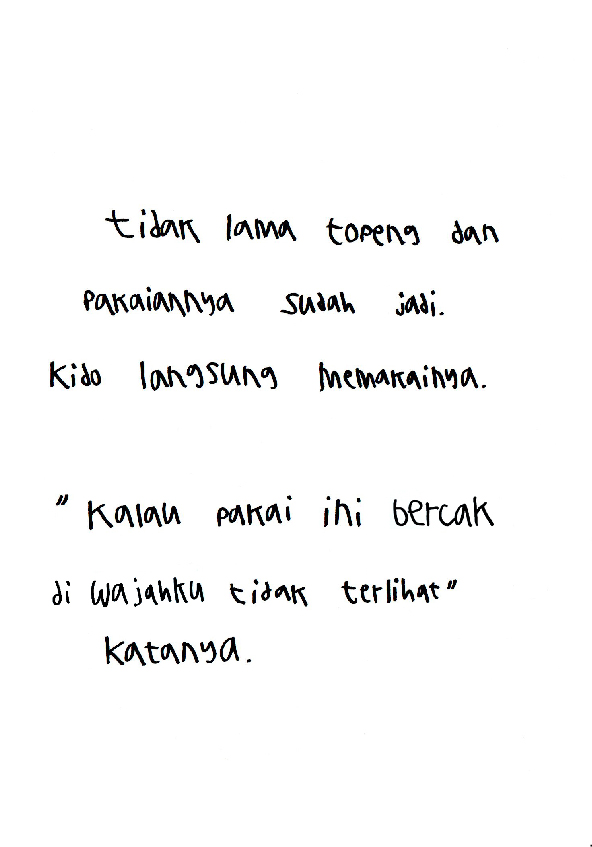 tidak lama topeng dan
pakaiannya sudah jadi.
Kido langsung memakainya.
"Kalau pakai ini bercak
di wajahku tidak terlihat"
katanya.